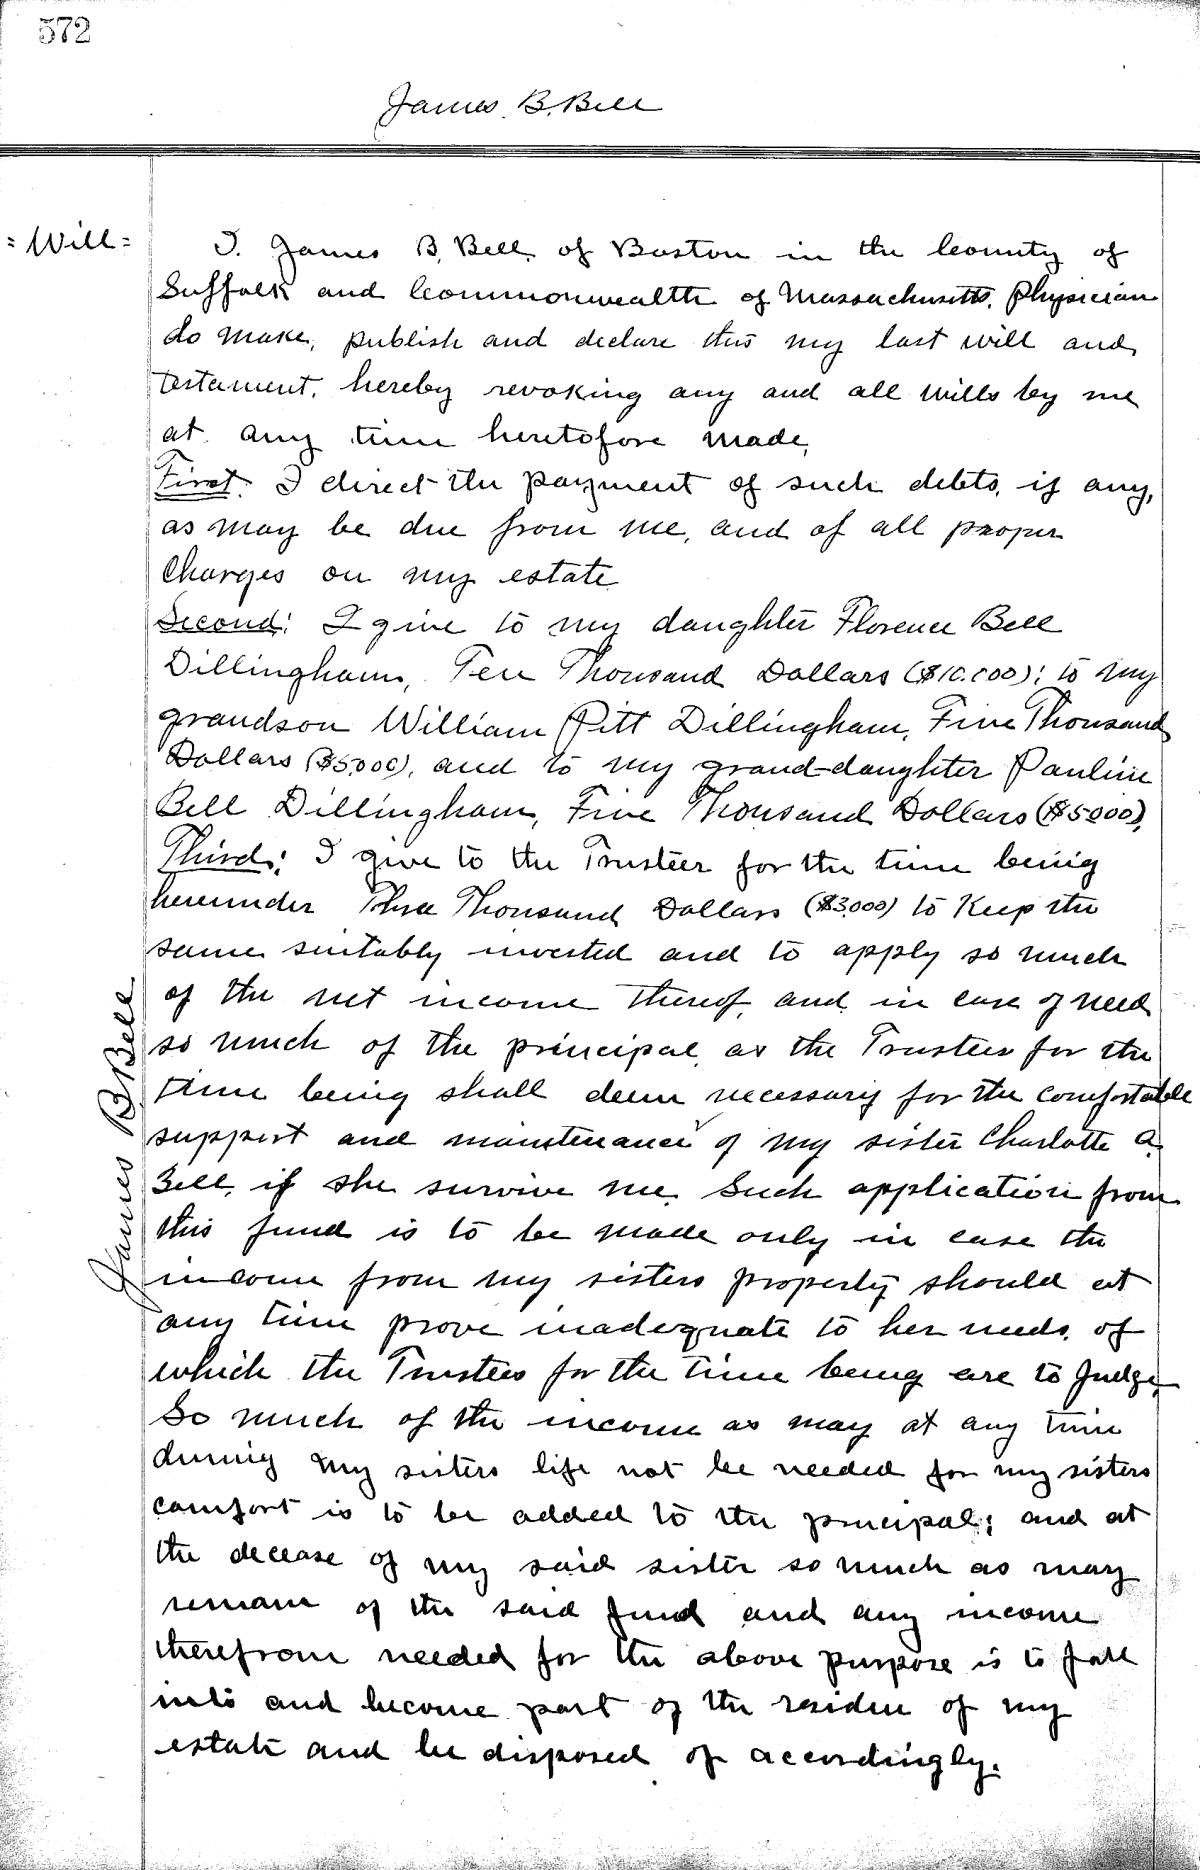 572
James. B. Bell
= Will =
I. James B. Bell. of Boston in the County of
Suffolk and Commonwealth of Massachusetts. Physician
do make, publish and declare this my last will and
testament. hereby revoking any and all wills by me
at any time heretofore made,
First. I direct the payment of such debts, if any,
as may be due from me, and of all proper
charges on my estate
Second: I give to my daughter Florence Bell
Dillingham, Ten Thousand Dollars ($10.000); to my
grandson William Pitt Dillingham, Five Thousand
Dollars ($5.000), and to my grand-daughter Pauline
Bell Dillingham, Five Thousand Dollars ($5.000),
Third: I give to the Trustees for the time being
hereunder Three Thousand Dollars ($3.000) to keep the
same suitably invested and to apply so much
of the net income thereof, and in case of need
so much of the principal, as the Trustees for the
time being shall deem necessary for the comfortable
support and maintenance of my sister Charlotte A.
Bell, if she survive me. Such application from
this fund is to be made only in case the
income from my sisters property should at
any time prove inadequate to her needs, of
which the Trustees for the time being are to Judge,
So much of the income as may at any time
during my sisters life not be needed for my sisters
comfort is to be added to the principal; and at
the decease of my said sister so much as may
remain of the said fund and any income
therefrom needed for the above purpose is to fall
into and become part of the residue of my
estate and be disposed of accordingly.
James B Bell